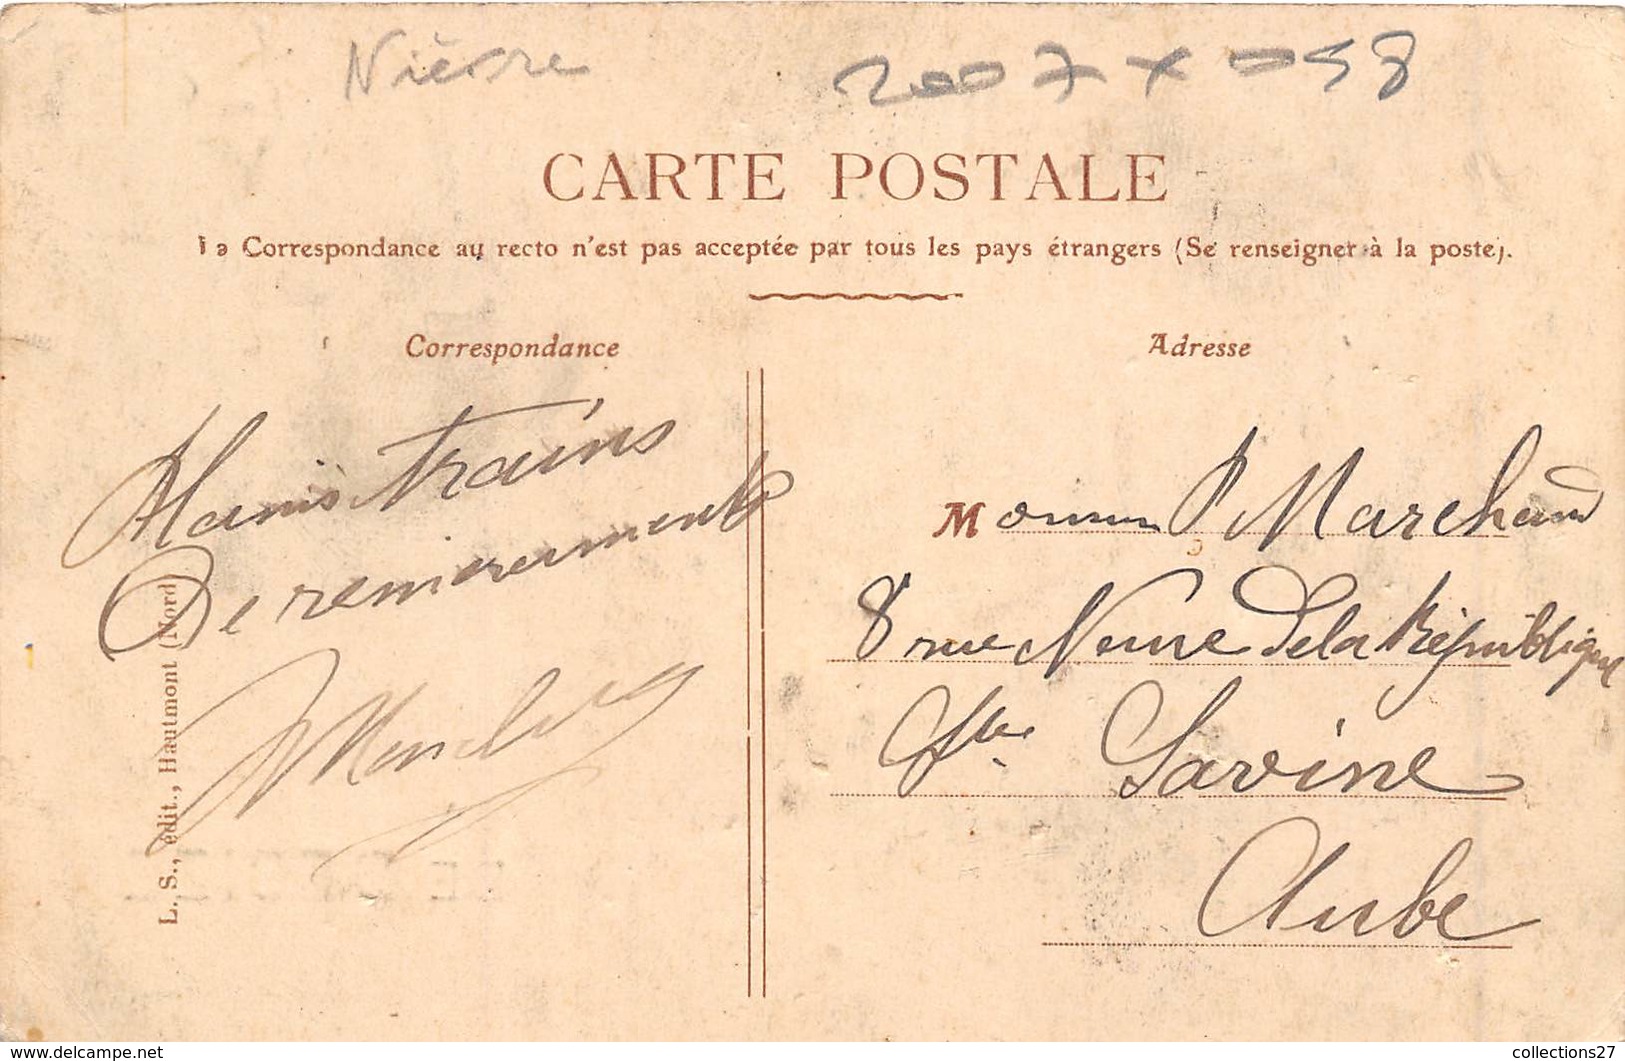 Nièvre
2007 x - 58
CARTE POSTALE
La Correspondance au recto n'est pas acceptée par tous les pays étrangers (Se renseigner à la poste).
Correspondance
Adresse
trains
De remerciements
Monsieur P Marchand
8 rue Neuve de la République
Ste Savine
Aube
L. S., édit., Hautmont (Nord)
www.delcampe.net
collections27